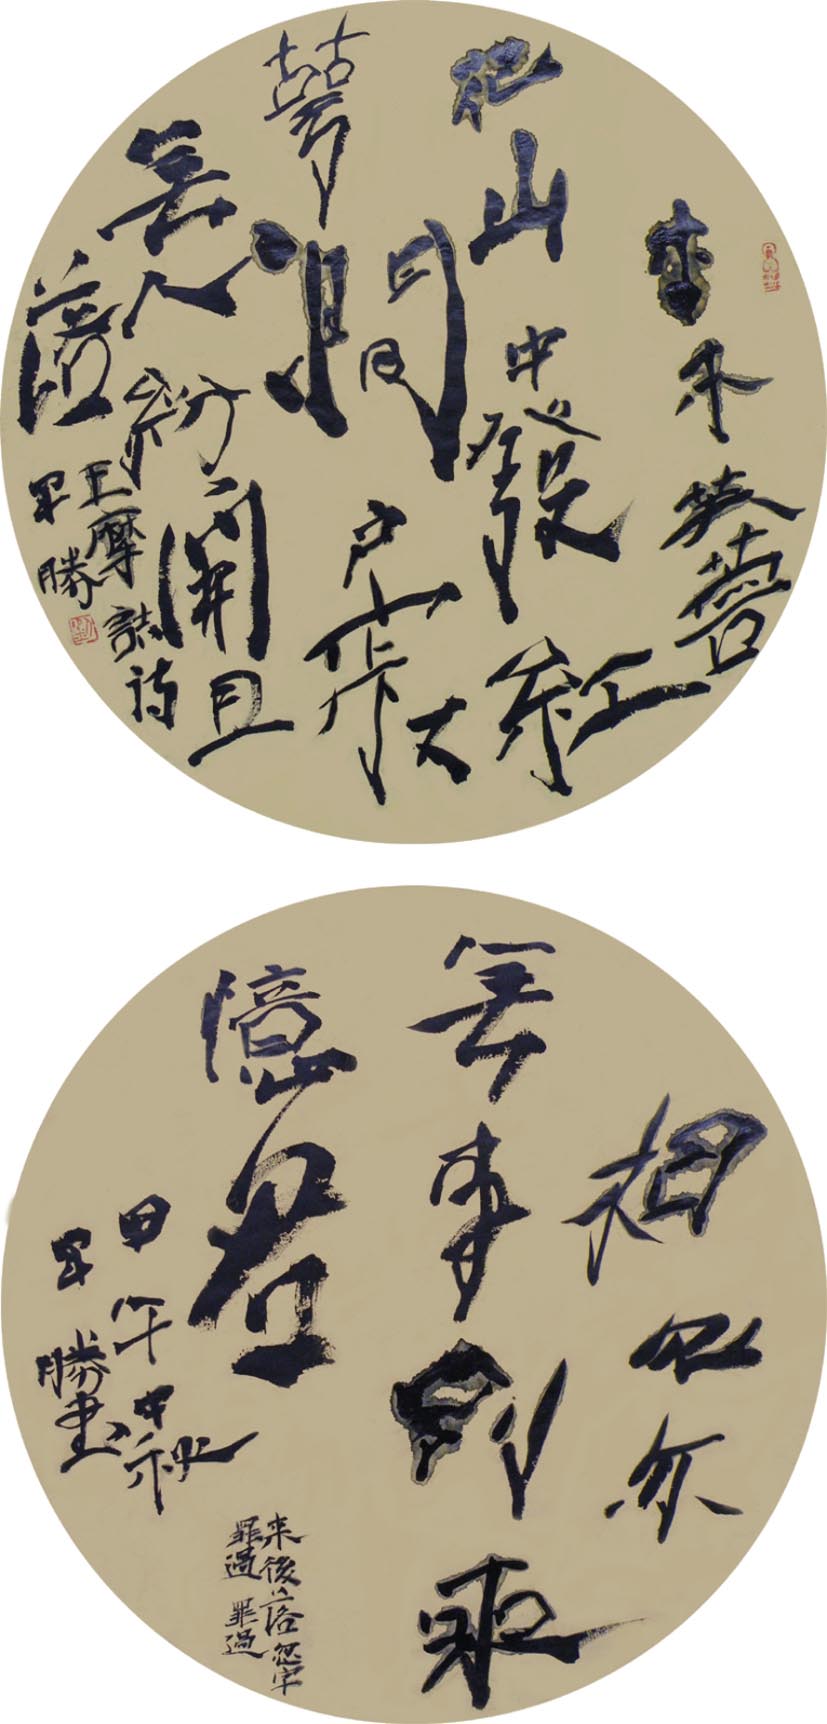 木末芙蓉
花山中發紅
萼澗戶寂
無人紛開且
落
王摩詰詩
軍勝
相見亦
無事別來
憶君
甲午中秋
軍勝書
来後落忽字
罪過罪過